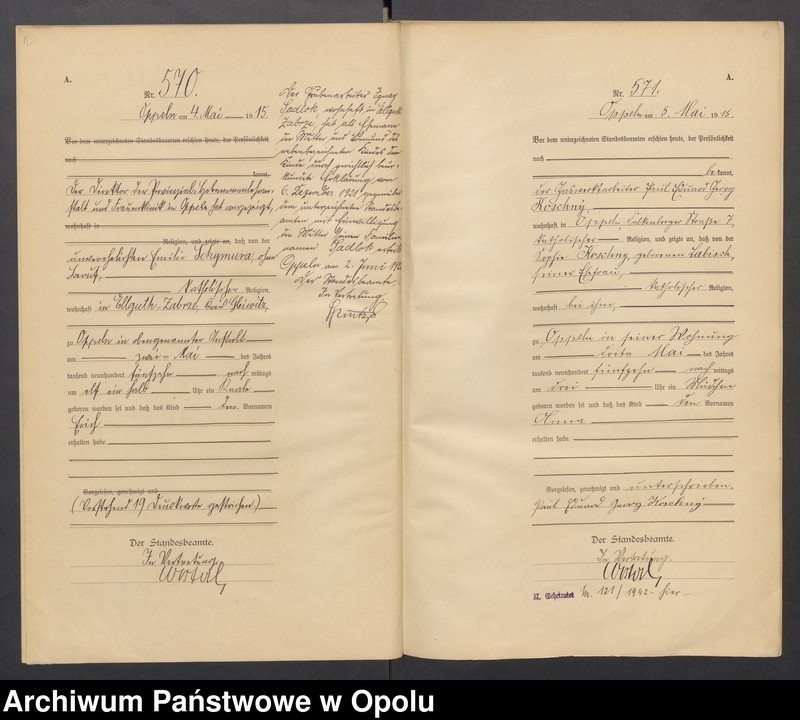 A.
Nr. 570.
Oppeln am 4. Mai 1915.
Vor dem unterzeichneten Standesbeamten erschien heute, der Persönlichkeit
nach
kannt,
Der Direktor der Provinzial-Hebammenlehran-
stalt und Frauenklinik in Oppeln hat angezeigt,
wohnhaft in
Religion, und zeigte an, daß von der
unverehelichten Emilie Schymura, ohne
Beruf,
katholischer Religion,
wohnhaft in Ellguth-Zabrze, Kreis Gleiwitz,
zu Oppeln in obengenannter Anstalt
am zwei Mai des Jahres
tausend neunhundert fünfzehn nach mittags
um elf ein halb Uhr ein Knabe
geboren worden sei und daß das Kind den Vornamen
Erich
erhalten habe.
Vorgelesen, genehmigt und
(Vorstehend 19 Druckworte gestrichen)
Der Standesbeamte.
In Vertretung
Der Grubenarbeiter Ignaz
Sadlok, wohnhaft in Ellguth
Zabrze, hat als Ehemann
der Mutter und Vormund des
nebenbezeichneten Kindes dem
Kinde durch gerichtlich beur-
kundete Erklärung vom
6. Dezember 1921 gegenüber
dem unterzeichneten Standesbe-
amten mit Einwilligung
der Mutter seinen Familien-
namen Sadlok erteilt.
Oppeln am 2. Juni
Der Standesbeamte
In Vertretung
A.
Nr. 571.
Oppeln am 5. Mai 1915.
Vor dem unterzeichneten Standesbeamten erschien heute, der Persönlichkeit
nach
be kannt,
der Gaswerkarbeiter Paul Eduard Georg
Koschny,
wohnhaft in Oppeln, Falkenberger Straße 7,
katholischer Religion, und zeigte an, daß von der
Sophie Koschny, geborenen Labisch,
seiner Ehefrau,
katholischer Religion,
wohnhaft bei ihm,
zu Oppeln in seiner Wohnung
am dritten Mai des Jahres
tausend neunhundert fünfzehn nach mittags
um drei Uhr ein Mädchen
geboren worden sei und daß das Kind den Vornamen
Anna
erhalten habe.
Vorgelesen, genehmigt und unterschrieben.
Paul Eduard Georg Koschny
Der Standesbeamte.
In Vertretung
Nr. 121/1942 hier
Archiwum Państwowe w Opolu